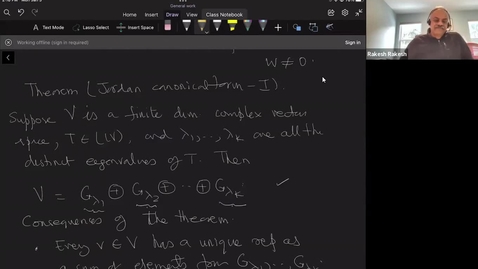 General work
File Home Insert Draw View Class Notebook
Text Mode Lasso Select Insert Space
Working offline (sign in required) Sign in
Rakesh Rakesh
W ≠ 0.
Theorem (Jordan canonical form - I).
Suppose V is a finite dim complex vector
space, T ∈ L(V), and λ₁, .., λₖ are all the
distinct eigenvalues of T. Then
V = G_λ₁ ⊕ G_λ₂ ⊕ ·· ⊕ G_λₖ. ✓
Consequences of the theorem.
• Every v ∈ V has a unique rep as
a sum of elements from G_λ₁, ..., G_λₖ